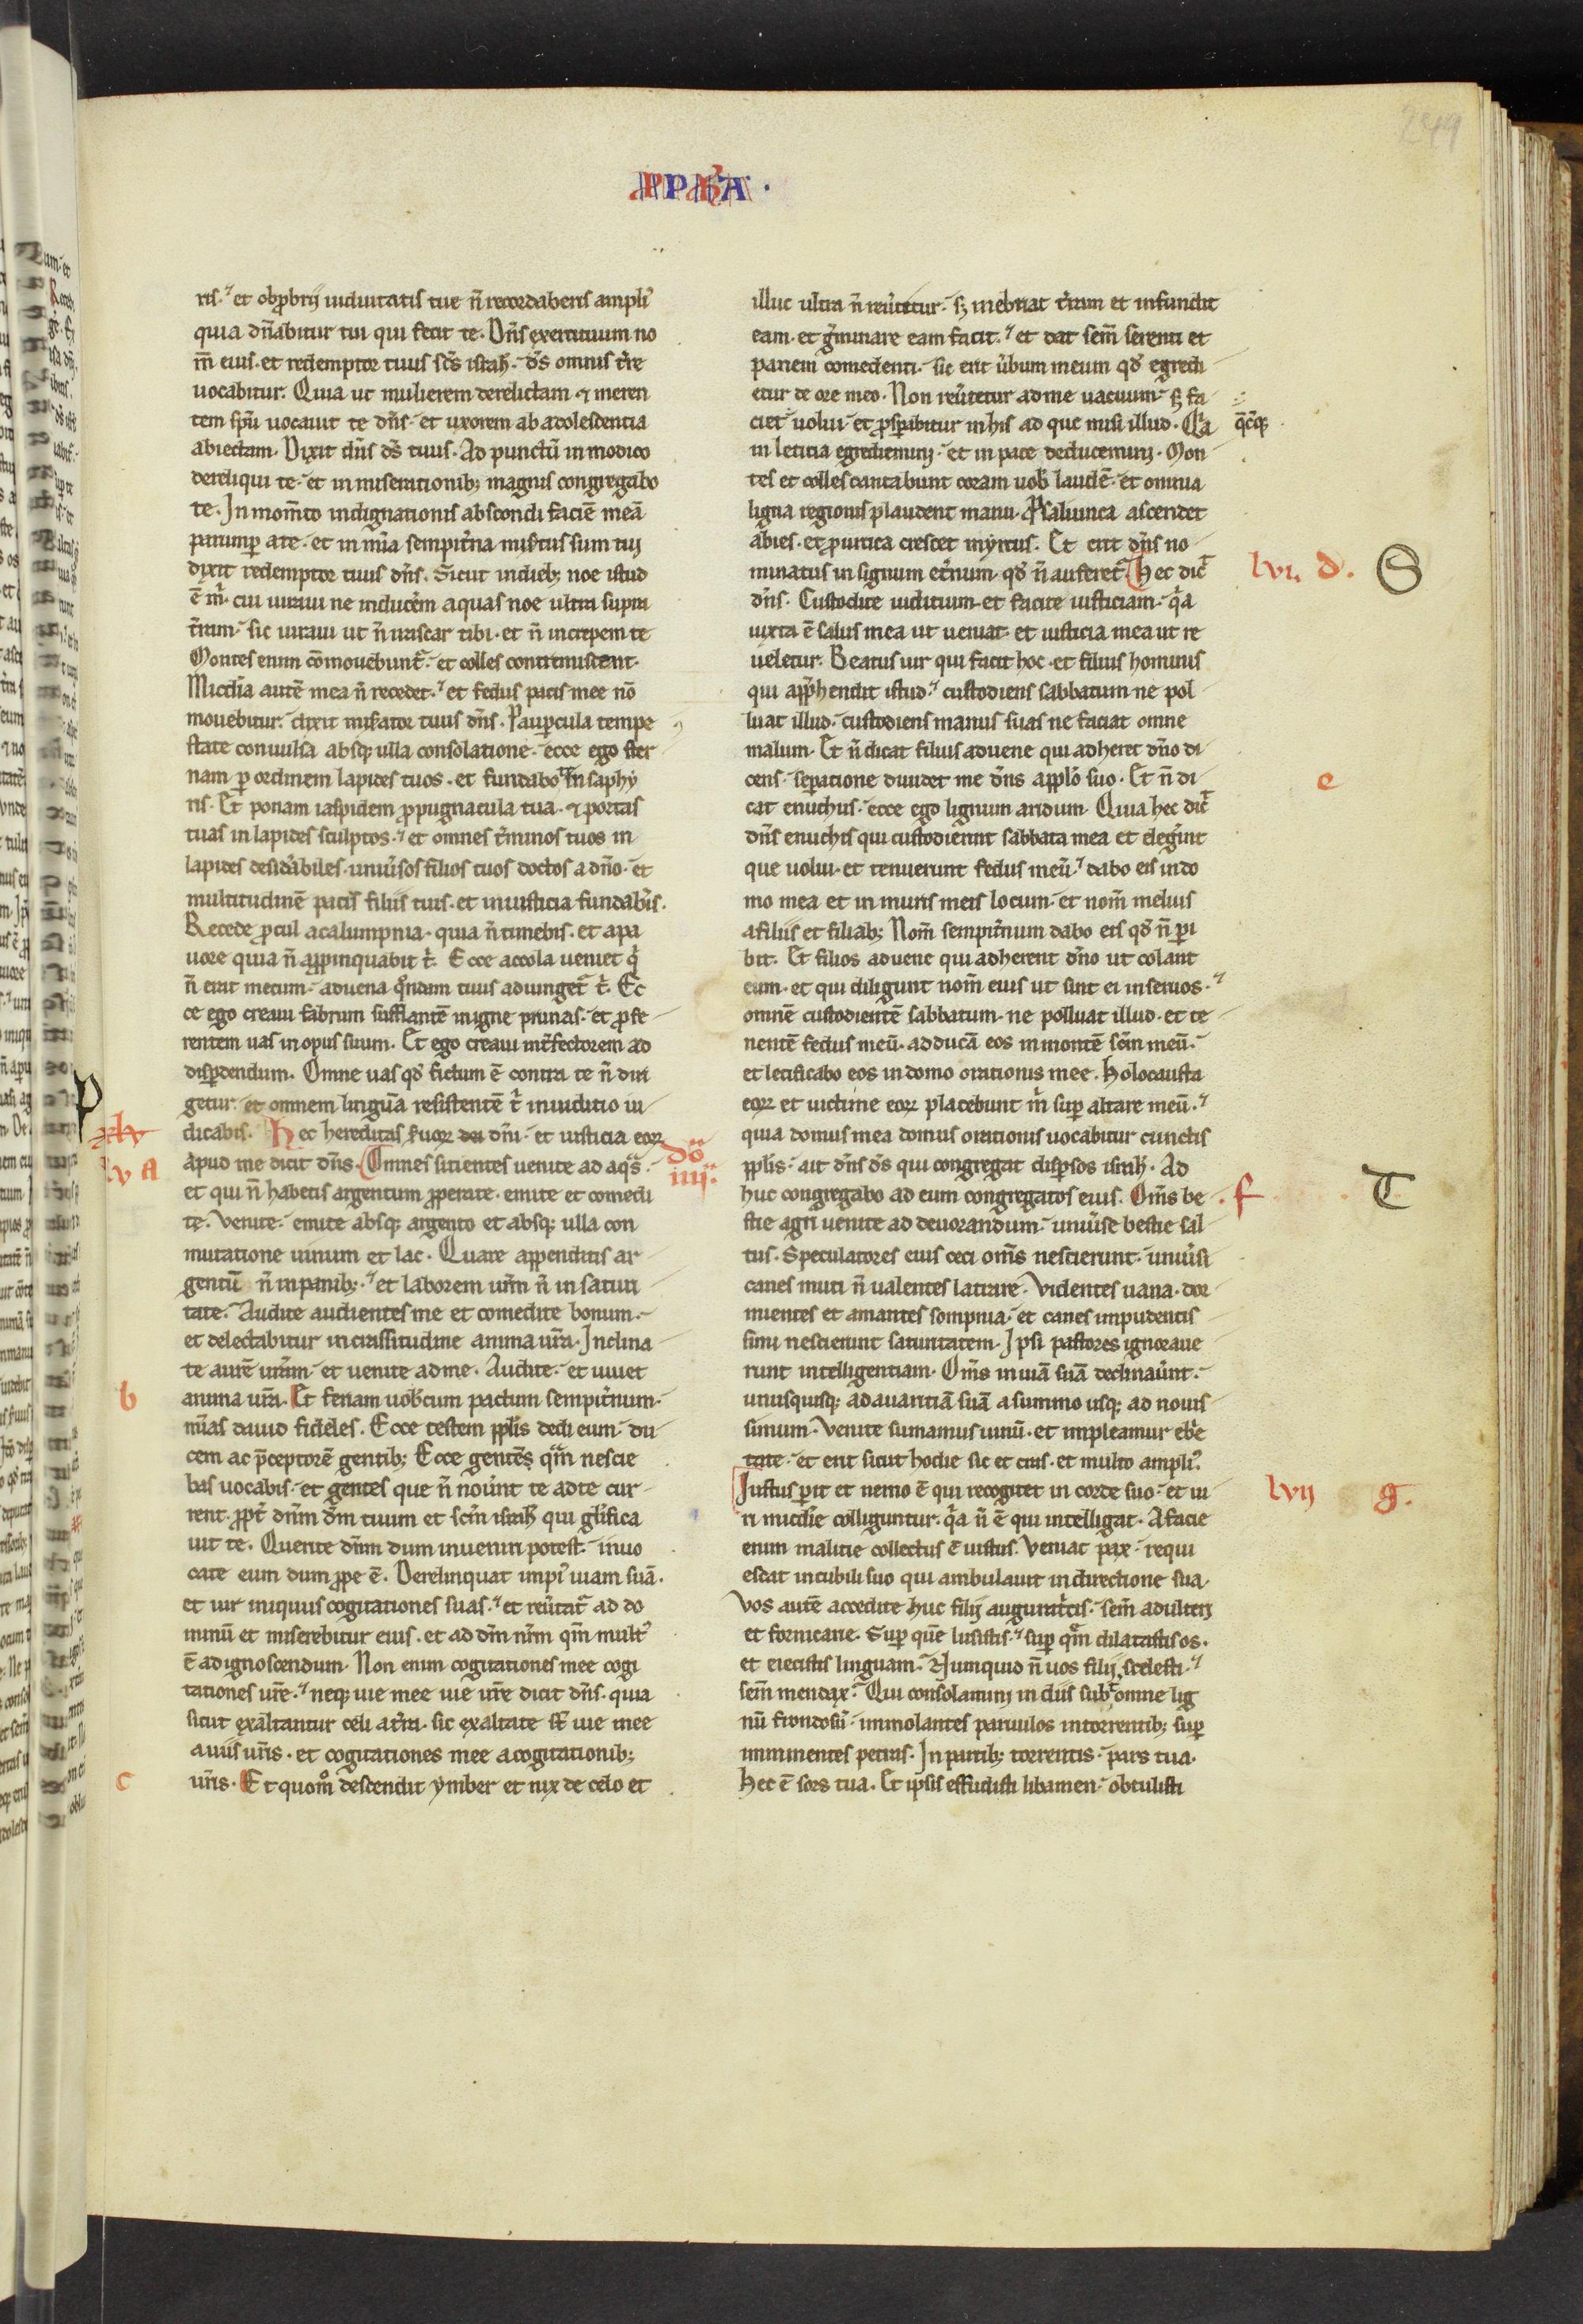 PPHA.
244
ris. et obprobrij uiduitatis tue ñ recordaberis ampli᾽
quia dñabitur tui qui fecit te. Dñs exercituum no
m̄ eius. et redemptor tuus sc̄s isrƚ. ds̄ omnis t̓re
uocabitur. Quia ut mulierem derelictam ⁊ meren
tem sp̄u uocauit te dñs. et uxorem ab adolescentia
abiectam. Dixit dñs ds̄ tuus. Ad punctū in modico
dereliqui te. et in miserationib; magnis congregabo
te. In mom̄to indignationis abscondi faciē meā
parump̱ a te. et in mīa sempit̓na mis̓tus sum tui
dixit redemptor tuus dñs. Sicut in dieb; noe istud
ē m̓. cui iuraui ne inducerem aquas noe ultra supra
t̓ram. sic iuraui ut ñ irascar tibi. et ñ increpem te
Montes enim cōmouebunt᾽. et colles contremiscent.
Micdīa autē mea ñ recedet. et fedus pacis mee nō
mouebitur. dixit mis̓ator tuus dñs. Paup̱cula tempe
state conuulsa absq; ulla consolatione. ecce ego ster
nam p̱ ordinem lapides tuos. et fundabo te in saphy
ris. Et ponam iaspidem propugnacula tua. ⁊ portas
tuas in lapides sculptos. et omnes t̓minos tuos in
lapides desid̓abiles. uniu̓sos filios tuos doctos a dño. et
multitudinē pacis filiis tuis. et in iusticia fundab̓is.
Recede procul a calumpnia. quia ñ timebis. et a pa
uore quia ñ app̱inquabit t̓. Ecce accola ueniet q̓
ñ erat mecum. aduena q̊ndam tuus adiunget᾽ t̓. Ec
ce ego creaui fabrum sufflantē in igne prunas. et profe
rentem uas in opus suum. Et ego creaui int̓fectorem ad
disp̱dendum. Omne uas qd̓ fictum ē contra te ñ diri
getur. et omnem linguā resistentē t̓ in iuditio iu
dicabis. Hec hereditas seruoꝝ dei dñi. et iusticia eoꝝ
apud me dicit dñs. Omnes sitientes uenite ad aq̄s.
et qui ñ habetis argentum properate. emite et comedi
te. Venite. emite absq; argento et absq; ulla con
mutatione uinum et lac. Quare appenditis ar
gentū ñ in panib;. et laborem ur̄m ñ in saturi
tate. Audite audientes me et comedite bonum.
et delectabitur in crassitudine anima ur̄a. Inclina
te aurē ur̄am. et uenite ad me. Audite. et uiuet
anima ur̄a. Et feriam uobiscum pactum sempit̓num.
mīas dauid fideles. Ecce testem pplīs dedi eum. du
cem ac p̄ceptorē gentib; Ecce gentēs qm̄ nescie
bas uocabis. et gentes que ñ nou̓unt te ad te cur
rent. propt̓ dñm dm̄ tuum et sc̄m isrƚ qui glīfica
uit te. Querite dñm dum inueniri potest. inuo
cate eum dum prope ē. Derelinquat impi᾽ uiam suā.
et uir iniquus cogitationes suas. et reu̓tat᾽ ad do
minū et miserebitur eius. et ad dm̄ nr̄m qm̄ mult᾽
ē ad ignoscendum. Non enim cogitationes mee cogi
tationes ur̄e. neq; uie mee uie ur̄e dicit dñs. quia
sicut exaltantur celi a t̓ra. sic exaltate sƚ uie mee
a uiis ur̄is. et cogitationes mee a cogitationib;
ur̄is. Et quom̊ descendit ymber et nix de celo et
P
xlv
lv a
dō
iiij.
b
c
illuc ultra ñ reu̓tetur. sꝫ inebriat t̓ram et infundit
eam. et g̓minare eam facit. et dat sem̄ serenti et
panem comedenti. sic erit u̓bum meum qd̓ egredi
etur de ore meo. Non reu̓tetur ad me uacuum. sꝫ fa
ciet uolui. et prosp̱abitur in his ad que misi illud. Q̓a
q̄cq̄;
in leticia egrediemini. et in pace deducemini. Mon
tes et colles cantabunt coram uob̓ laudē. et omnia
ligna regionis plaudent manu. Pro saliunca ascendet
abies. et pro urtica crescet myrtus. Et erit dñs no
minatus in signum et̓num. qd̓ ñ auferet᾽ Hec dic̄
dñs. Custodite iuditium. et facite iusticiam. q̓a
iuxta ē salus mea ut ueniat. et iusticia mea ut re
ueletur. Beatus uir qui facit hoc. et filius hominis
qui app̱hendit istud. custodiens sabbatum ne pol
luat illud. custodiens manus suas ne faciat omne
malum. Et ñ dicat filius aduene qui adheret dño di
cens. sep̱atione diuidet me dñs a pplō suo. Et ñ di
cat enuchus. ecce ego lignum aridum. Quia hec dic̄
dñs enuchis qui custodierint sabbata mea et eleg̓int
que uolui. et tenuerunt fedus meū. dabo eis in do
mo mea et in muris meis locum. et nom̄ melius
a filiis et filiab; Nom̄ sempit̓num dabo eis qd̓ ñ p̱i
bit. Et filios aduene qui adherent dño ut colant
eum. et qui diligunt nom̄ eius ut sint ei in seruos.
omnē custodientē sabbatum. ne polluat illud. et te
nentē fedus meū. adducā eos in montē sc̄m meū.
et letificabo eos in domo orationis mee. Holocausta
eoꝝ et uictime eoꝝ placebunt m̓ sup̱ altare meū.
quia domus mea domus orationis uocabitur cunctis
pplīs. ait dñs ds̄ qui congregat disp̱sos isrƚ. Ad
huc congregabo ad eum congregatos eius. Om̄s be
stie agri uenite ad deuorandum. uniu̓se bestie sal
tus. Speculatores eius ceci om̄s nescierunt. uniu̓si
canes muti ñ ualentes latrare. Videntes uana. dor
mientes et amantes sompnia. et canes impudentis
simi nescierunt saturitatem. Ipsi pastores ignoraue
runt intelligentiam. Om̄s in uiā suā declinau̓unt.
unusquisq; ad auaritiā suā a summo usq; ad nouis
simum. Venite sumamus uinū. et impleamur ebrie
tate. et erit sicut hodie sic et cras. et multo ampli᾽.
Iustus p̱it et nemo ē qui recogitet in corde suo. et ui
ri mic̄die colliguntur. q̓a ñ ē qui intelligat. A facie
enim malitie collectus ē iustus. Veniat pax. requi
escat in cubili suo qui ambulauit in directione sua.
Vos autē accedite huc filij augurat̓cis. sem̄ adulteri
et fornicarie. Sup̱ quē lusistis. sup̱ qm̄ dilatastis os.
et eiecistis linguam. Numquid ñ uos filij scelesti.
sem̄ mendax. Qui consolamini in diis subt̓ omne lig
nū frondosū. immolantes paruulos in torrentib; sup̱
imminentes petras. In partib; torrentis. pars tua.
hec ē sors tua. Et ipsis effudisti libamen. obtulisti
lvi. d.
S
e
f
T
lvij g.